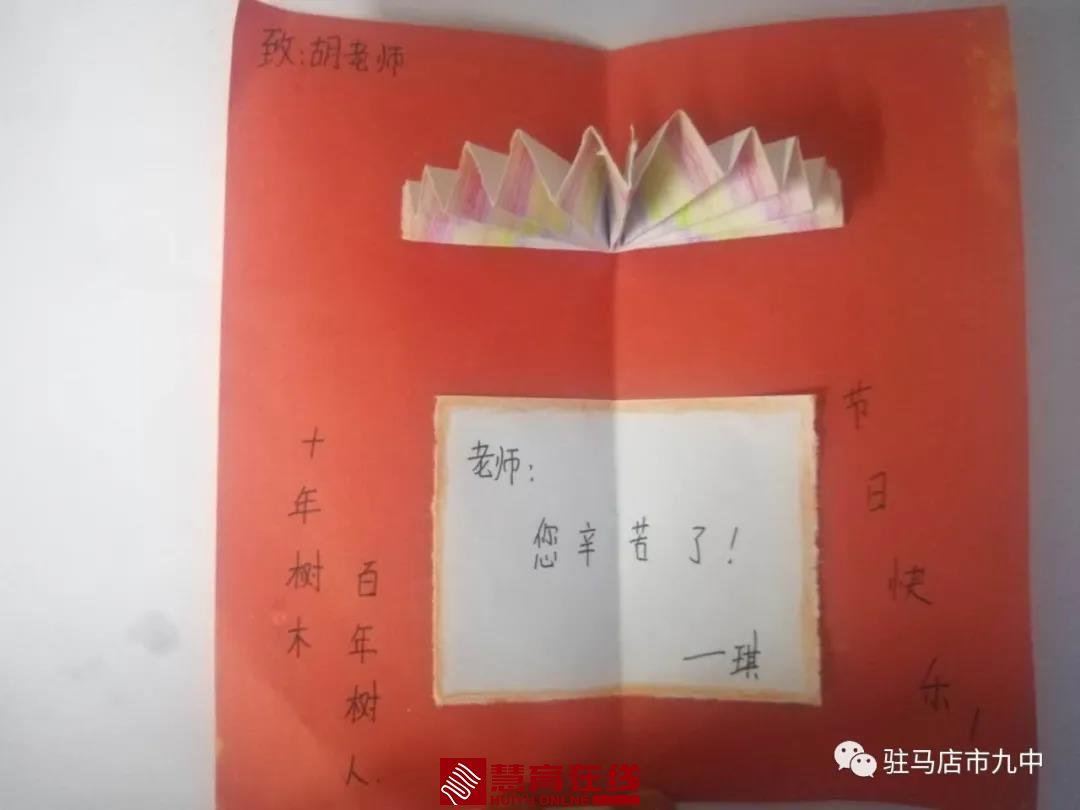 致:胡老师
十年树木
百年树人.
老师:
您辛苦了!
一琪
节日快乐!
慧育在线
HUIYU ONLINE
驻马店市九中